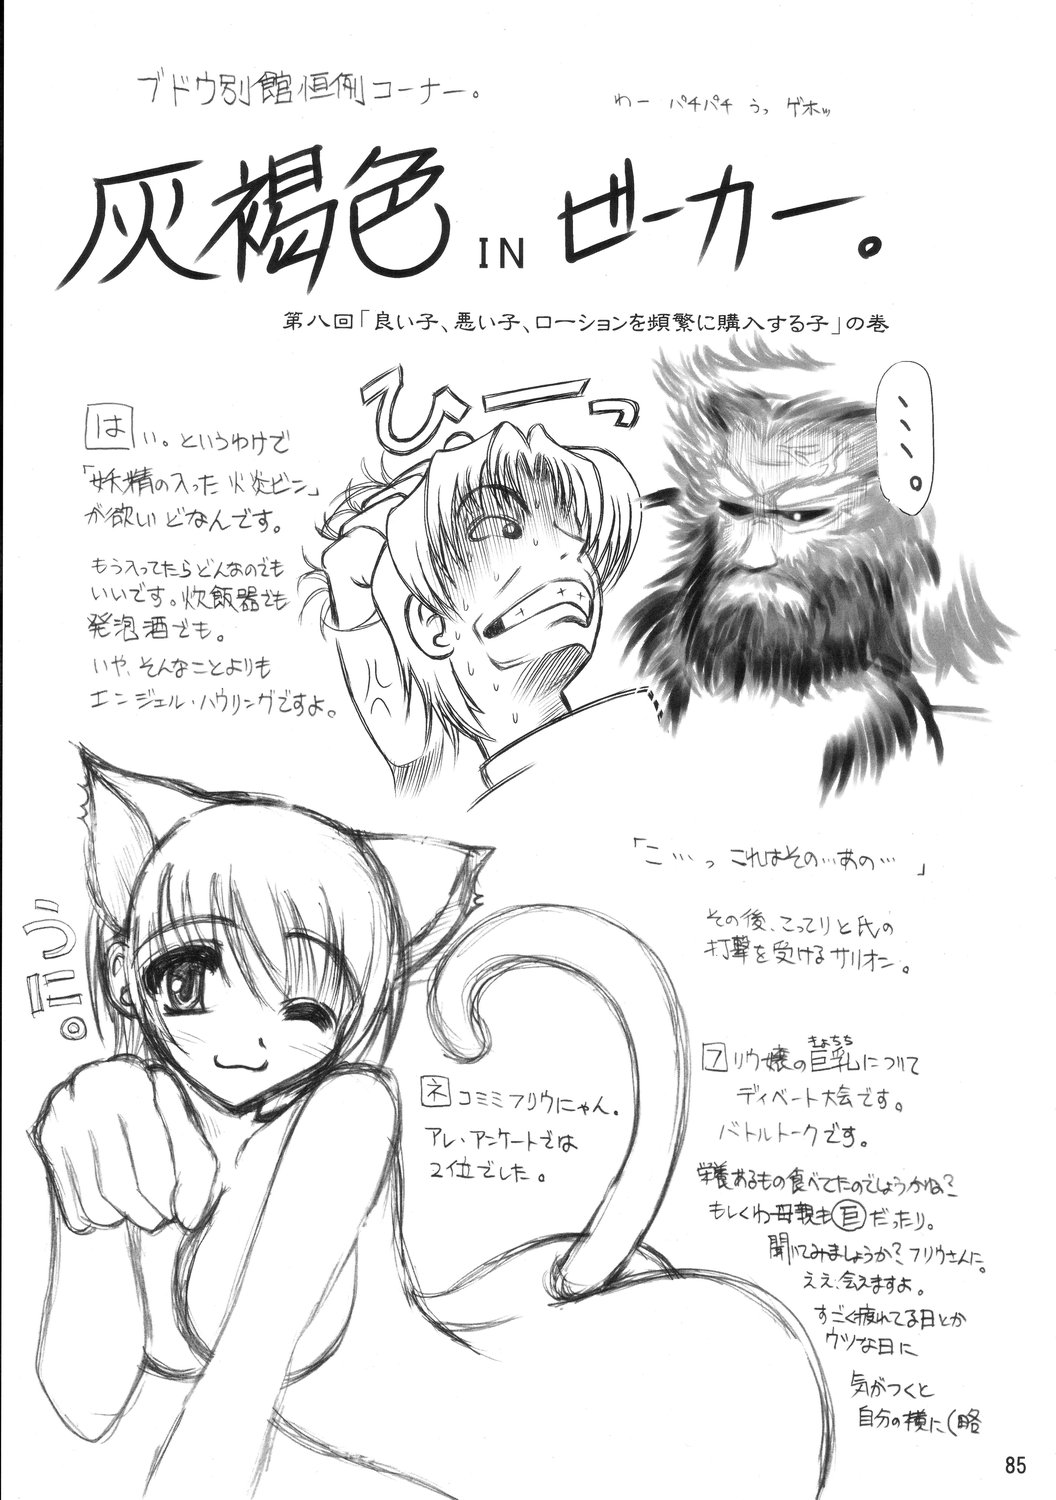 ブドウ別館恒例コーナー。
わー パチパチ うっ ゲホッ
灰褐色 IN ビーカー。
第八回「良い子、悪い子、ローションを頻繁に購入する子」の巻
ひーっ
、、、、。
はい。というわけで
「妖精の入った火炎ビン」
が欲しいどなんです。
もう入ってたらどんなのでも
いいです。炊飯器でも
発泡酒でも。
いや、そんなことよりも
エンジェル・ハウリングですよ。
「こ…っ これはその…あの…」
その後、こってりと氏の
打撃を受けるサリオン。
うにっ。
ネコミミフリウにゃん。
アレ・アンケートでは
2位でした。
フリウ嬢の巨乳について
きょちち
ディベート大会です。
バトルトークです。
栄養あるもの食べてたのでしょうかね?
もしくわ母親も巨だったり。
聞いてみましょうか?フリウさんに。
ええ、会えますよ。
すごく疲れてる日とか
ウツな日に
気がつくと
自分の横に(略
85